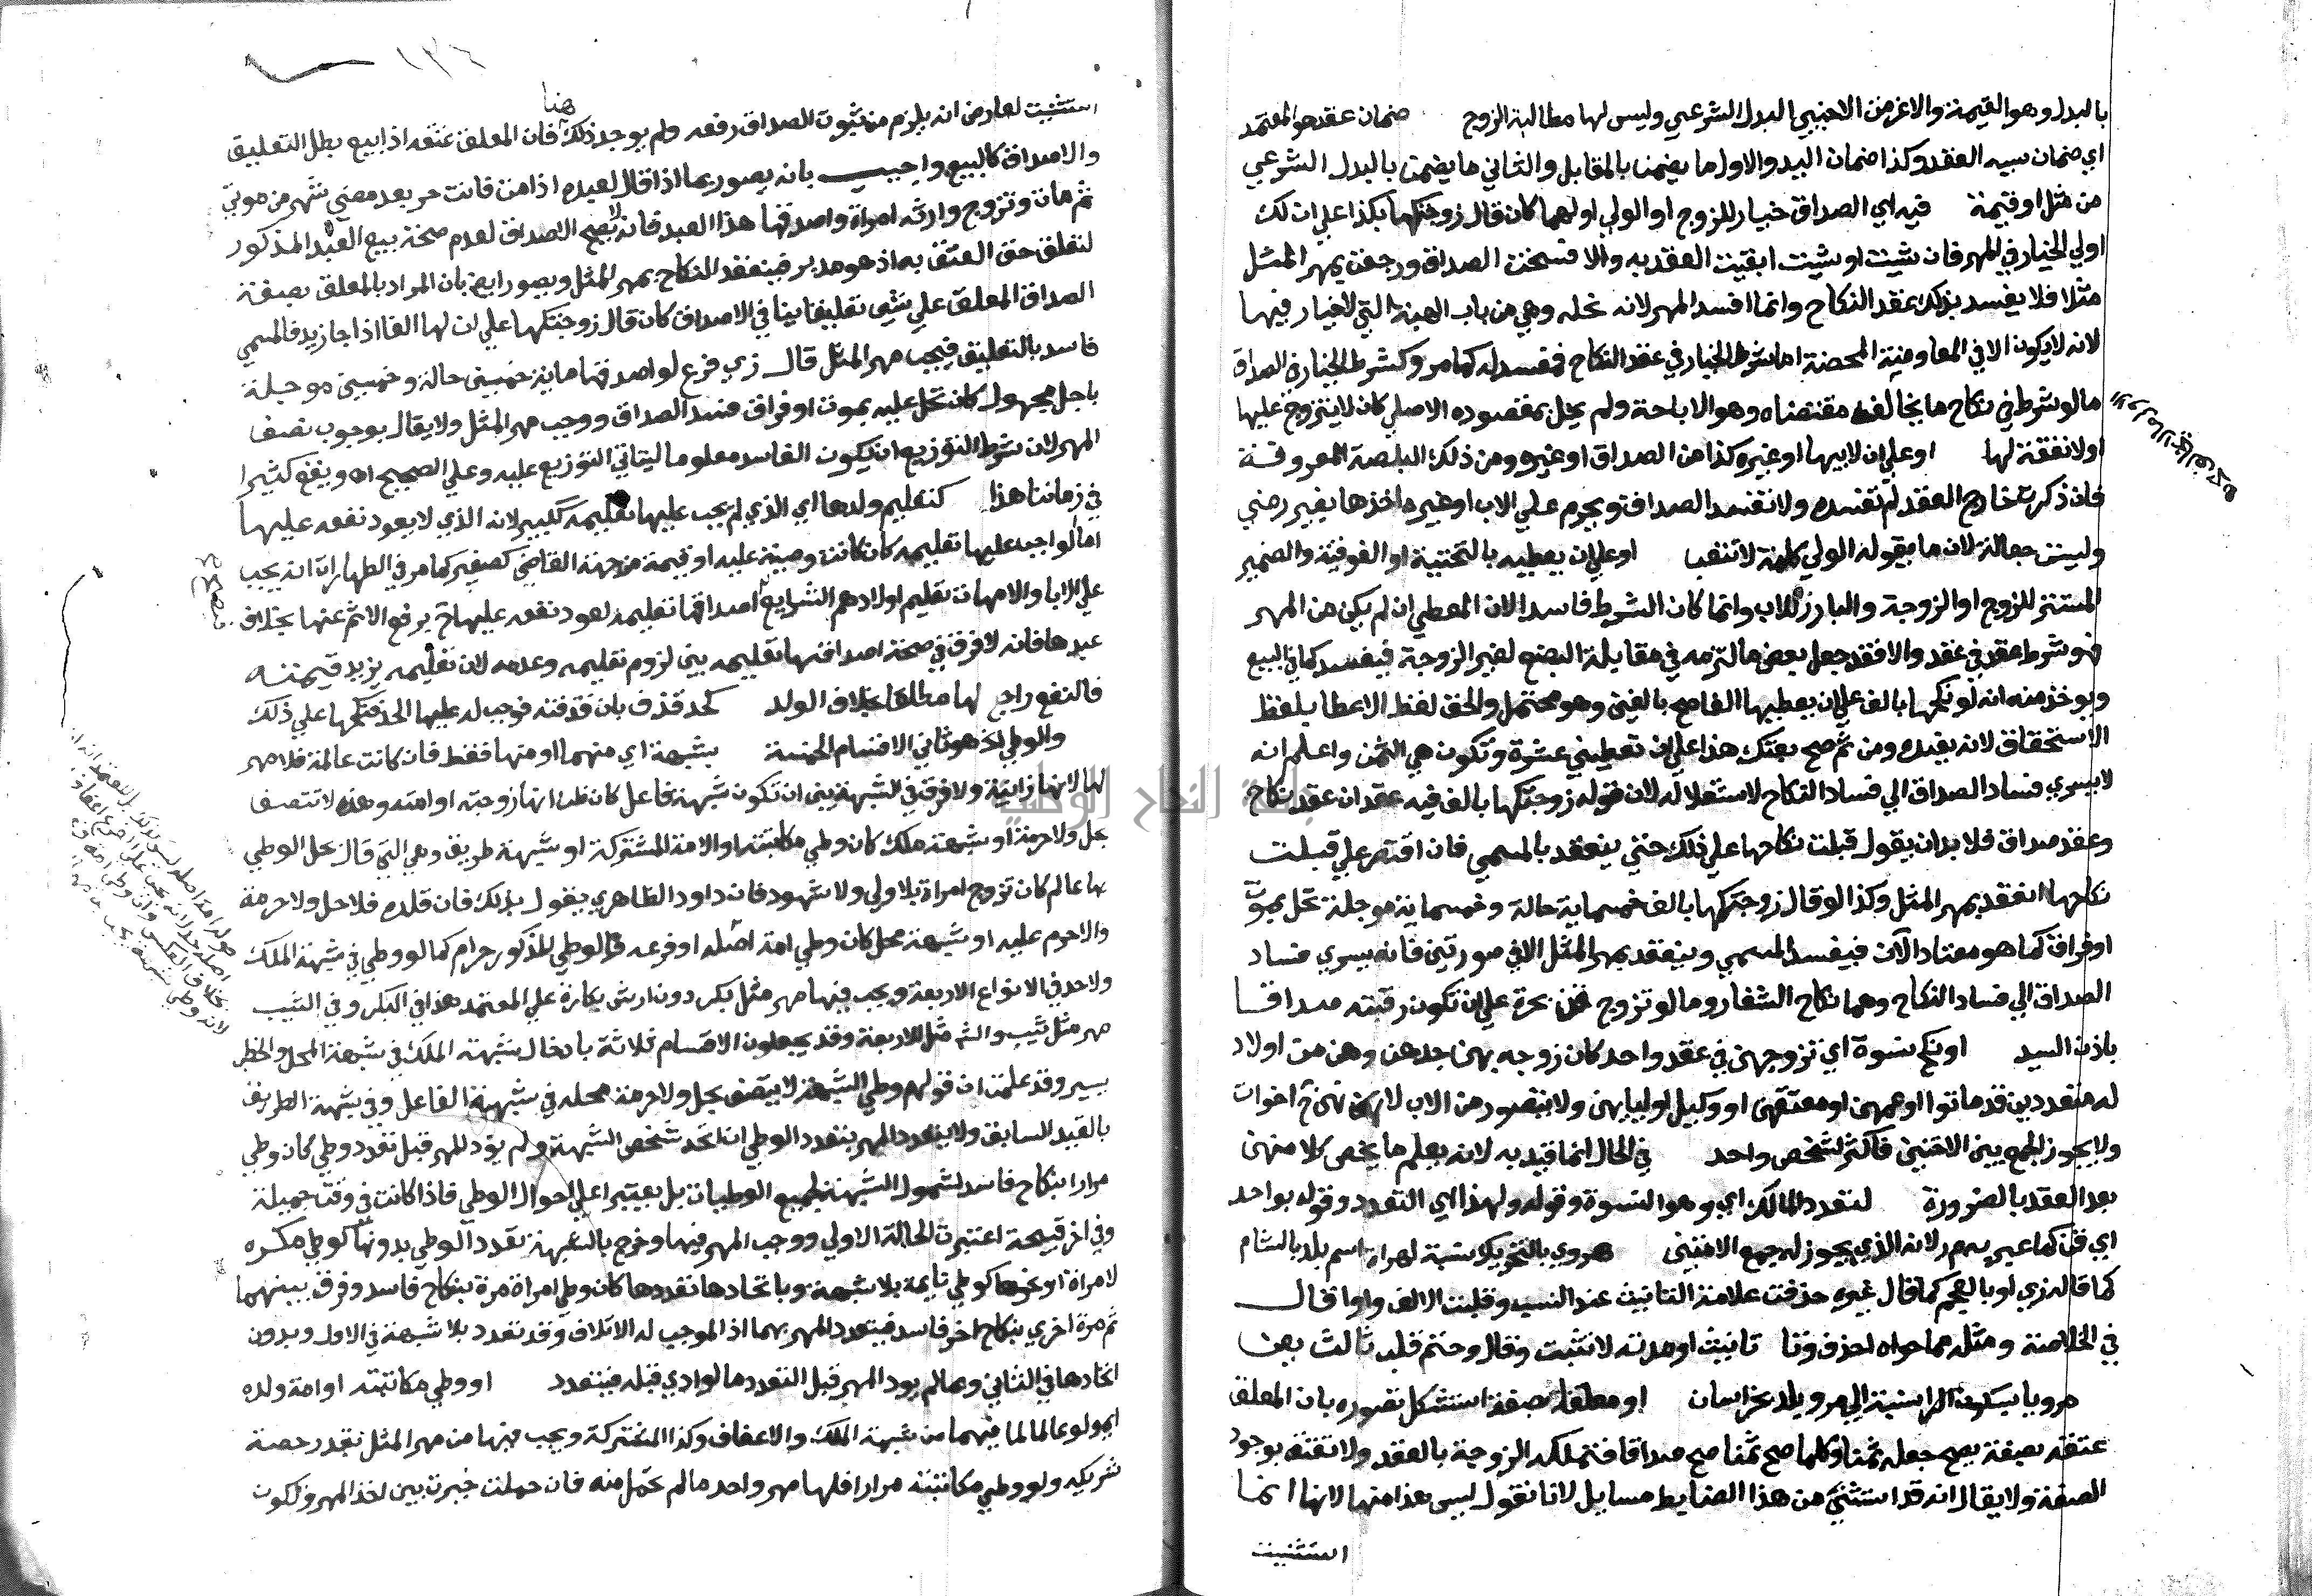 بالبدل وهو القيمة والاغرمن الاجنبي البدل الشرعي وليس لها مطالبة الزوج ضمان عقد هو المعتمد
اي ضمان سببه العقد وكذا ضمان اليد والاول ما يضمن بالمقابل والثاني ما يضمن بالبدل الشرعي
من مثل او قيمة فيه اي الصداق خيار للزوج او الولي او لهما كان قال زوجتكها بكذا علي ان لك
اولي الخيار في المهر فان شيت او شيت ابقيت العقد به والا فسخت الصداق ورجعت بمهر المثل
مثلا فلا يفسد بذلك عقد النكاح وانما افسد المهر لانه نحلة وهي من باب الهبة التي لاخيار فيها
لانه لا يكون الا في المعاوضة المحضة اما شرط الخيار في عقد النكاح فمفسد له كما مر وكشرط الخيار في الصداق
مالو شرط في نكاح ما يخالف مقتضاه وهو الاباحة ولم يخل بمقصوده الاصلي كان لا يتزوج عليها
اولا نفقة لها او علي ان لابيها او غيره كذا من الصداق او غيره ومن ذلك البلصة المعروفة
فان ذكرت خارج العقد لم تفسده ولا تفسد الصداق ويحرم علي الاب او غيره اخذها بغير رضي
وليست جعالة لان ما يقوله الولي كلمة لا تتعب او علي ان يعطيه بالتحتية او الفوقية والضمير
المستتر للزوج او الزوجة والبارز للاب وانما كان الشرط فاسدا لان المعطي ان لم يكن من المهر
فهو شرط عقد في عقد والا فقد جعل بعض ما التزمه في مقابلة البضع لغير الزوجة فيفسد كما في البيع
ويوخذ منه انه لو نكحها بالف علي ان يعطيها الفا صح بالفين وهو محتمل والحق لفظ الاعطا بلفظ
الاستحقاق لانه يفيده ومن ثم صح بعتك هذا علي ان تعطيني عشرة وتكون هي الثمن واعلم انه
لا يسري فساد الصداق الي فساد النكاح لاستقلاله لان قوله زوجتكها بالف فيه عقدان عقد نكاح
وعقد صداق فلا بد ان يقول قبلت نكاحها علي ذلك حتي ينعقد بالمسمي فان اقتصر علي قبلت
نكاحها انعقد بمهر المثل وكذا لو قال زوجتكها بالف خمسماية حالة وخمسماية موجلة تحل بموت
او فراق كما هو معتاد الآن فيفسد المسمي وينعقد بمهر المثل الا في صورتين فانه يسري فساد
الصداق الي فساد النكاح وهما نكاح الشغار وما لو تزوج قن بحرة علي ان تكون رقبته صداقا
باذن السيد او نكح نسوة اي تزوجهن في عقد واحد كان زوجه بهن جدهن وهن من اولاد
له متعددين قد ماتوا او عمهن او معتقهن او وكيل اوليايهن ولا يتصور من الاب لانهن ح اخوات
ولا يجوز الجمع بين الاختين فاكثر لشخص واحد في الحال انما قيد به لانه يعلم ما يخص كلا منهن
بعد العقد بالضرورة لتعدد المالك اي وهو النسوة وقوله ولهذا اي التعدد وقوله بواحد
اي قن كما عبر به م ر لانه الذي يجوز له جمع الاثنين هروي بالتحريك نسبة لهراة اسم بلد بالشام
كما قاله زي او بالعجم كما قال غيره حذفت علامة التانيث عند النسب وقلبت الالف واوا قال
في الخلاصة ومثله مما حواه احذف وتا تانيث او مدته لا تثبت وقال وحتم قلب ثالث يعن
مرويا بسكون الرا نسبة الي مرو بلد بخراسان او معلقا بصفة استشكل تصوره بان المعلق
عتقه بصفة يصح جعله ثمنا وكلما صح ثمنا صح صداقا فتملكه الزوجة بالعقد ولا تعتقه بوجود
الصفة ولا يقال انه قد استثني من هذا الضابط مسايل لانا نقول ليس هذا منها لانها انما
استثنيت
١٣٤
استثنيت لعارض انه يلزم من ثبوت الصداق رفعه ولم يوجد ذلك هنا فان المعلق عتقه اذا بيع بطل التعليق
والاصداق كالبيع واجيب بانه يصور بما اذا قال لعبده اذا مت فانت حر بعد مضي شهر من موتي
ثم مات وتزوج وارثه امراة واصدقها هذا العبد فانه لا يصح الصداق لعدم صحة بيع العبد المذكور
لتعلق حق العتق به اذ هو مدبر فينعقد النكاح بمهر المثل ويصور ايض بان المراد بالمعلق بصفة
الصداق المعلق علي شي تعليقا ينافي الاصداق كان قال زوجتكها علي ان لها الفا اذا جا زيد فالمسمي
فاسد بالتعليق فيجب مهر المثل قال زي فرع لو اصدقها ماية خمسين حالة وخمسين موجلة
باجل مجهول كان تحل عليه بموت او فراق فسد الصداق ووجب مهر المثل ولا يقال بوجوب نصف
المهر لان شرط التوزيع ان يكون الفاسد معلوما ليتاتي التوزيع عليه وعلي الصحيح اه ويقع كثيرا
في زماننا هذا كتعليم ولدها اي الذي لم يجب عليها تعليمه ككبير لانه الذي لا يعود نفعه عليها
اما لو اجب عليها تعليمه كان كانت وصية عليه او قيمة من جهة القاضي كصغير كما مر في الطهارة انه يجب
علي الابا والامهات تعليم اولادهم الشرايع اصداقها تعليمه لعود نفعه عليها ح برفع الاثم عنها بخلاف
عبدها فانه لا فرق في صحة اصداقها تعليمه بين لزوم تعليمه وعدمه لان تعليمه يزيد قيمته
فالنفع راجع لها مطلقا بخلاف الولد كحد قذف بان قذفته فوجب له عليها الحد فنكحها علي ذلك
والوطي الخ هو ثاني الاقسام الخمسة بشبهة اي منهما او منها فقط فان كانت عالمة فلا مهر
لها لانها زانية ولا فرق في الشبهة بين ان تكون شبهة فاعل كان ظن انها زوجته او امته وهذه لا تتصف
بحل ولا حرمة او شبهة ملك كان وطي مكاتبته او الامة المشتركة او شبهة طريق وهي التي قال بحل الوطي
بها عالم كان تزوج امراة بلا ولي ولا شهود فان داود الظاهري يقول بذلك فان قلده فلا حل ولا حرمة
والا حرم عليه او شبهة محل كان وطي امة اصله او فرعه فالوطي المذكور حرام كما لو وطي في شبهة الملك
ولا حد في الانواع الاربعة ويجب فيها مهر مثل بكر دون ارش بكارة علي المعتمد هذا في البكر وفي الثيب
مهر مثل ثيب وقد يجعلون الاقسام ثلاثة بادخال شبهة الملك في شبهة المحل والخطر
يسير وقد علمت ان قولهم وطي الشبهة لا يتصف بحل ولا حرمة محله في شبهة الفاعل وفي شبهة الطريق
بالقيد السابق ولا يتعدد المهر بتعدد الوطي ان اتحد شخص الشبهة ولم يود المهر قبل تعدد وطي كان وطي
مرارا بنكاح فاسد لشمول الشبهة لجميع الوطيات بل يعتبر اعلي احوال الوطي فاذا كانت في وقت جميلة
وفي اخر قبيحة اعتبرت الحالة الاولي ووجب المهر فيها وخرج بالشبهة تعدد الوطي بدونها كوطي مكره
لامراة او نحوها كوطي نايمة بلا شبهة وباتحادها تعددها كان وطي امراة مرة بنكاح فاسد وفرق بينهما
ثم مرة اخري بنكاح اخر فاسد فيتعدد المهر بهما اذ الموجب له الاتلاف وقد تعدد بلا شبهة في الاول وبدون
اتحادها في الثاني وبما لم يود المهر قبل التعدد ما لو ادي قبله فيتعدد او وطي مكاتبته او امة ولده
ولو عالما لما فيهما من شبهة الملك والاعفاف وكذا المشتركة ويجب فيها من مهر المثل بقدر حصة
شريكه ولو وطي مكاتبته مرارا فلها مهر واحد ما لم تحمل منه فان حملت خيرت بين اخذ المهر وتكون